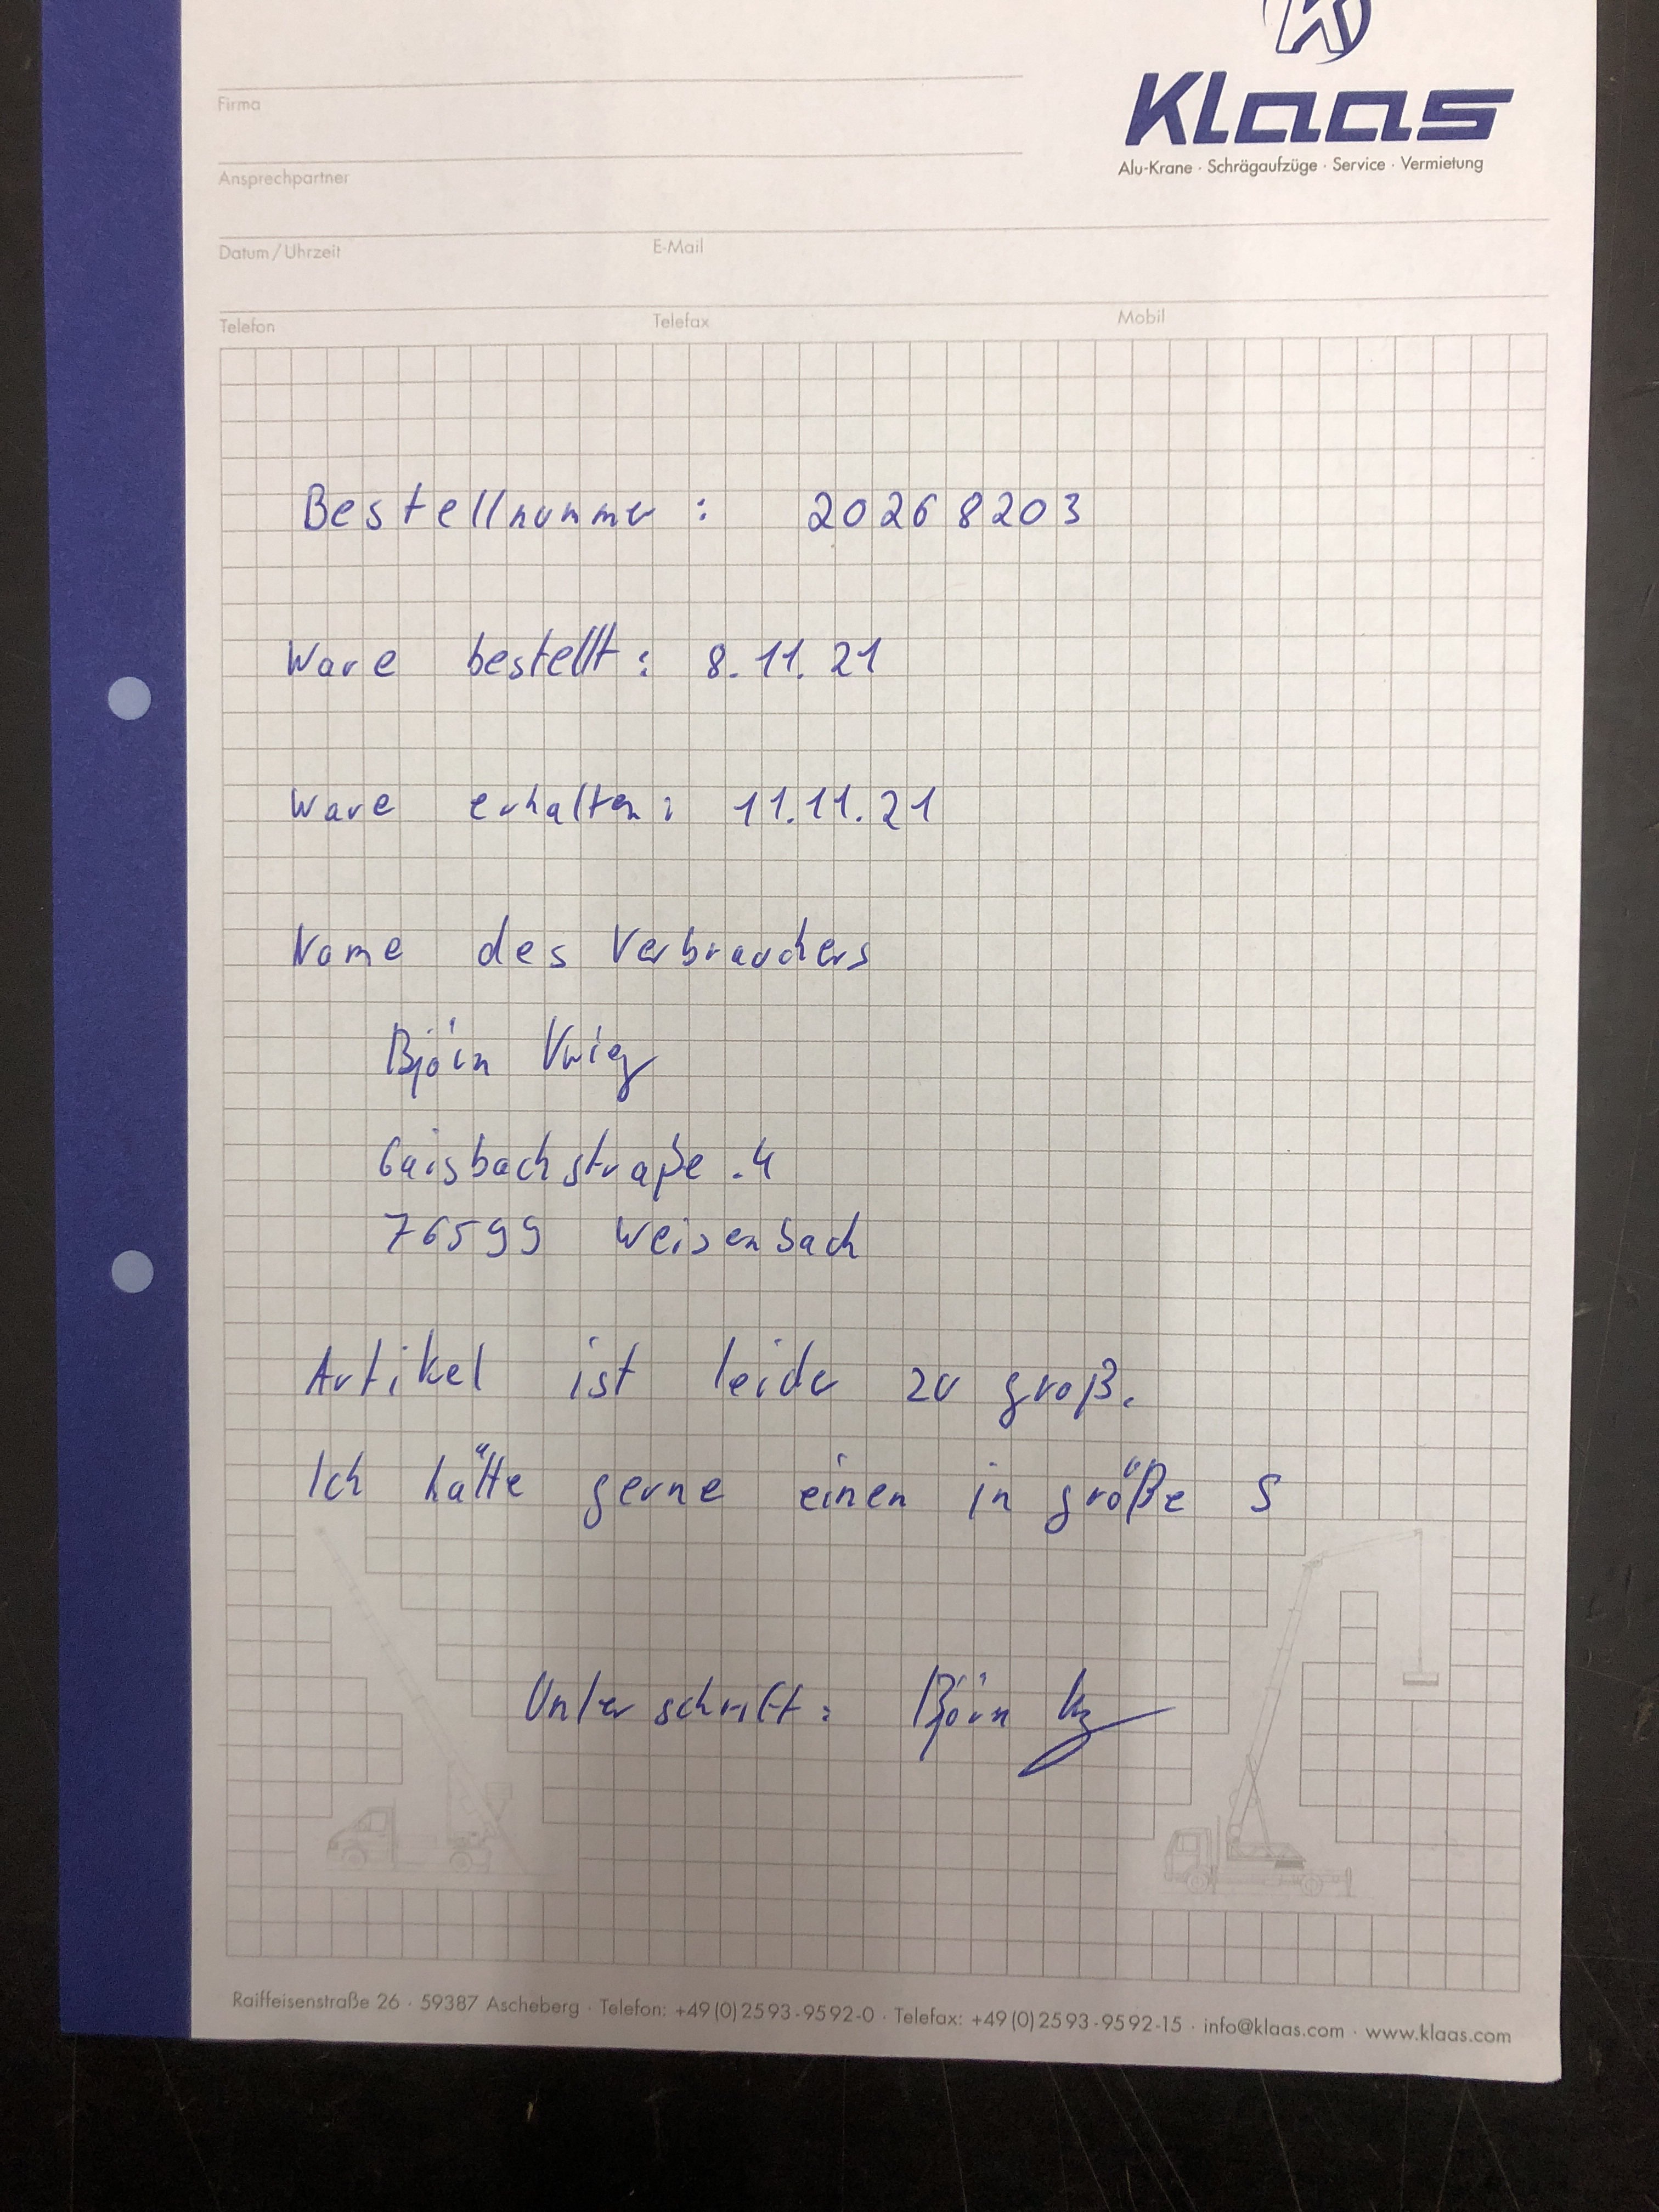 Klaas
Alu-Krane · Schrägaufzüge · Service · Vermietung
Firma
Ansprechpartner
Datum / Uhrzeit E-Mail
Telefon Telefax Mobil
Bestellnummer : 20268203
Ware bestellt : 8.11.21
Ware erhalten : 11.11.21
Name des Verbrauchers
Björn
Gaisbachstraße .4
76599 Weisenbach
Artikel ist leider zu groß.
Ich hätte gerne einen in größe S
Unterschrift : Björn
Raiffeisenstraße 26 · 59387 Ascheberg · Telefon: +49 (0) 25 93 - 95 92-0 · Telefax: +49 (0) 25 93 - 95 92-15 · info@klaas.com · www.klaas.com